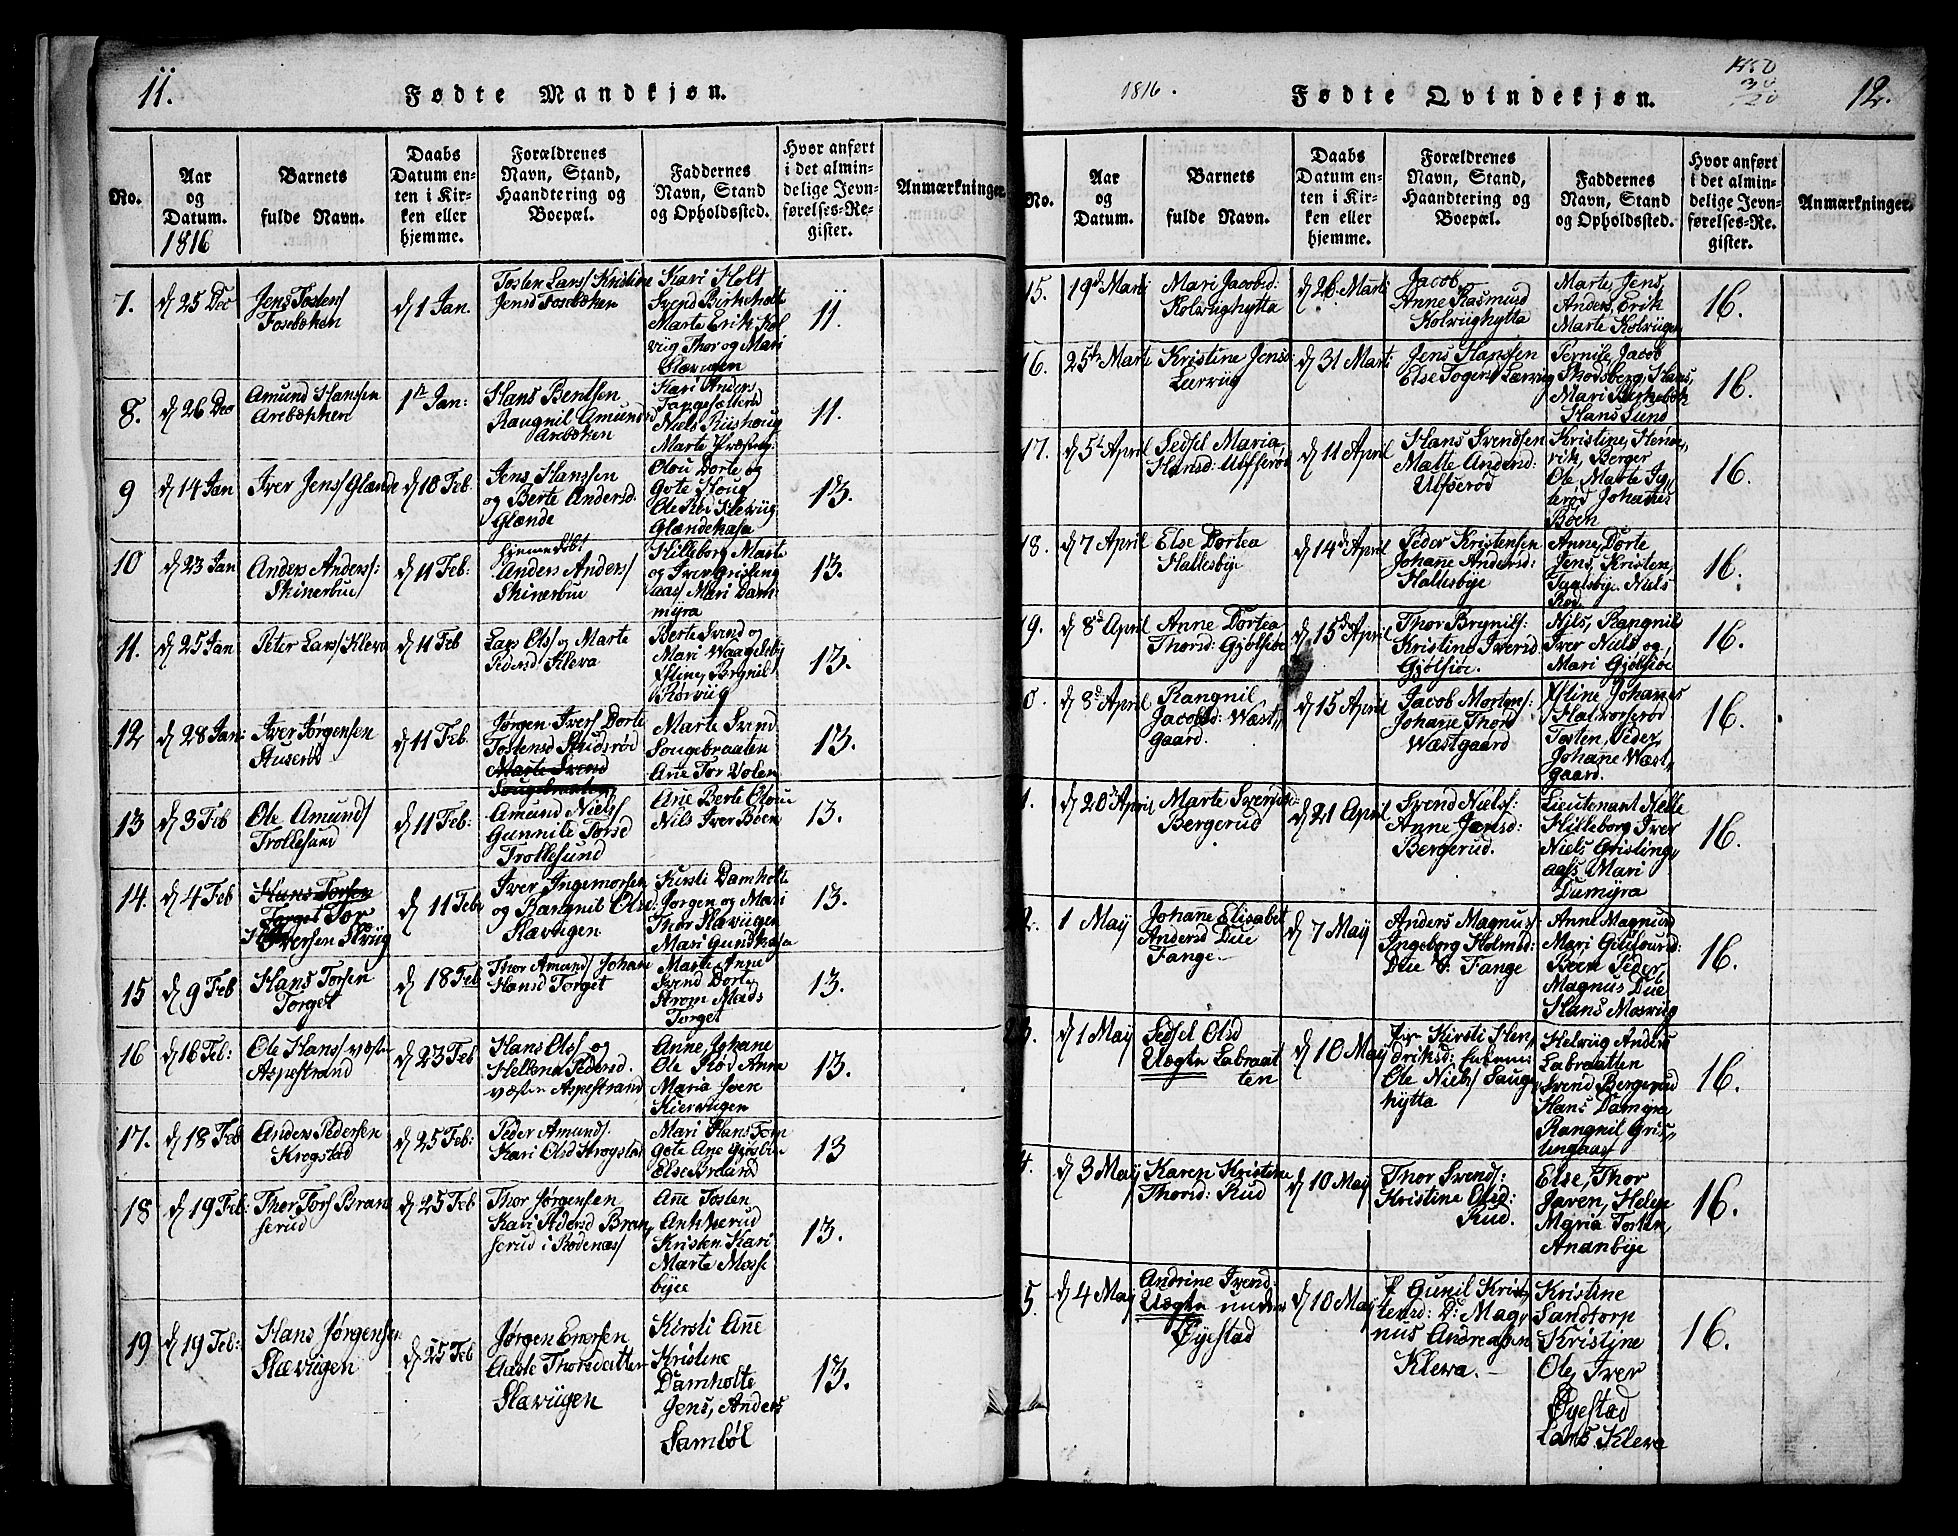 11.
Fødte Mandkjøn.
No.
Aar
og
Datum.
1816
Barnets
fulde Navn.
Daabs
Datum en-
ten i Kir-
ken eller
hjemme.
Forældrenes
Navn, Stand,
Haandtering og
Boepæl.
Faddernes
Navn, Stand
og Opholdssted.
Hvor anført
i det almin-
delige Jevn-
førelses-Re-
gister.
Anmærkninger.
7.
d 25 Dec
Jens Tostens
Fosebækken
d 1 Jan.
Tosten Lars Kristine
Jensd Fosebækken
Kari Holt
Svend Birkeholt
Marte Erik Kol
viig Thor og Mari
Slævigen
11.
8.
d 26 Dec
Amund Hanssen
Arebækken
1 Jan:
Hans Bentsen
Raugnil Amunds
Arbøken
Kari Anders
Tange
Niels Riishoug
Marte
11.
9
d 14 Jan
Iver Jens Glænde
d 18 Feb
Jens Hanssen
og Berte Andersd.
Glænde
Olou Dorte og
Gote Houg
Ole Klevüg
Glændehasa
13.
10
d 23 Jan
Anders Anders:
Skinerbüe
d 11 Feb:
hjemmedøbt
Anders Anders
Skinerbüe
Hilleborg Marte
og Iver Grisling
aas Mari Dam
myra
13.
11.
d 25 Jan
Peter Lars Kleva
d 11 Feb
Lars Ols og Marte
Pedersd Kleva
Berte Svend og
Mari Waagelsby
Stine, Brynil
Korviig
13.
12
d 28 Jan:
Iver Jørgensen
Stuserød
d 11 Feb
Jørgen Ivers Dorte
Tostensd Studsrød
Marte Svend
Sougebraaten
Marte Svend
Sougebraaten
Ane Tor Volen
13.
13
d 3 Feb
Ole Amunds
Trollesund
d 11 Feb:
Amund Niels
Gunnile Torsd
Trollesund
Ane Berte Olou
Nils Iver Böen
13.
14.
d 4 Feb
Hans Torsen
Torget Tor
Iversen
d 11 Feb:
Iver Ingemorsen
og Rangnil Olsd
Slavigen
Kirsti Damholte
Jorgen og Mari
Thor Slavügen
Mari Gundhasa
13.
15
d 9 Feb
Hans Torsen
Torget
d 18 Feb
Thor Amunds Johane
Hansd Torget
Marte Anne
Svend Dorte
Strøm Mads
Torget
13.
16
d 16 Feb:
Ole Hans væstre
Aspestrand
d 23 Feb
Hans Ols og
Hellena Pedersd.
væstre Aspestrand
Anne Johane
Ole Rød Anne
Maria
Kiervügen
13.
17.
d 18 Feb
Anders Pedersen
Krogstad
d 25 Feb:
Peder Amunds.
Kari Olsd Krogstad
Mari Hans Tom
Gote Ane
Else Braarud
13
18
d 19 Feb:
Thor Tors Bran
serud
d 25 Feb
Thor Jørgensen
Kari Pedersd Bran
serud i Rødenæs
Ane Tosten
Ankerud
Kristen Kari
Marte Mosse
byee
13.
19
d 19 Feb:
Hans Jørgensen
Slævigen
d 25 Feb
Jørgen Enersen
Aaste Thorsdatter
Slævügen
Kirsti Ane
Kristine
Damholte
Jens, Anders
Sambøl
13.
1816.
Fødte Qvindekjøn.
1850
30
20
12.
No.
Aar
og
Datum.
Barnets
fulde Navn.
Daabs
Datum en-
ten i Kir-
ken eller
hjemme.
Forældrenes
Navn, Stand,
Haandtering og
Boepæl.
Faddernes
Navn, Stand
og Opholdssted.
Hvor anført
i det almin-
delige Jevn-
førelses-Re-
gister.
Anmærkninger.
15.
19 Marti
Mari Jacobsd:
Kolviighytta
d 26 Marti
Jacob
Anne Rasmund
Kolviighytta
Marte, Jens,
Anders, Erik
Marte Kolvügen
16.
16.
25 Marte
Kristine Jensd:
Lervüg
d 31 Mart
Jens Hanssen
Else Togersd Lærvüg
Pernile, Jacob
Skodsberg, Hans,
Mari Birkebøk
Hans Lund
16.
17.
d 5 April
Sedsel Maria
Hansd: Ulfserød
d 11 April
Hans Svendsen
Malte Andersd:
Ulfserød
Kristine, Hen
rik, Berger
Ole, Marte Ig
lerød Johanes
Böen
16
18.
d 7 April
Else Dortea
Hallesbye
d 14 April
Peder Kristensen
Johane Andersd:
Hallesbye
Anne, Dorte
Jens, Kristen,
Taalsbye Niels
Rød
16.
19.
d 8 April
Anne Dortea
Thorsd: Gjølsiøe
d 15 April
Thor Brynils:
Kristine Iversd
Gjølsiøe.
Nils, Rangnil
Iver Niels og
Mari Gjølsiøe
16.
0.
d 8 April
Rangnil
Jacobsd: Wæst
gaard.
d 15 April
Jacob Mortens:
Johane Thorsd
Wæstgaard
Stine Johanes
Halvorserød
Tosten, Peder,
Johane Wæst
gaard.
16.
1.
d 20 April
Marte Svendsd:
Bergerud
d 21 April
Svend Niels:
Anne Jensd:
Bergerud.
Lieutenant Nelle
Hilleborg Iver
Niels Grisling
aas Mari
Dumyra
16.
2.
1 May
Johane Elisabet
Andersd Due
Fange
d 7 May
Anders Magnus
Ingeborg Holmsd:
Due Fange
Anne Magnus
Mari
Böen Peder,
Magnus Due
Hans Mosviig
16.
3.
d 1 May
Sedsel Olsd
Uægte Labraat
ten
d 10 May
Kirsti Hen
driksd:
Ole Niels Saug
hytta
Helvig Anders
Labraatten
Svend Bergerud
Hans Damyra
Rangnil Gris
lingaas
16.
4.
d 3 May
Karen Kristine
Thorsd: Rud
d 10 May
Thor Svends:
Kristine Olsd:
Rud.
Else, Thor
Jaren, Helene
Maria Tosten,
Ananbye
16.
5.
d 4 May
Andrine Svend:
Uægte under
Øyestad
d 10 May
P Gunil Krist
tensd: D: Mag
nus Andreasen
Kleva.
Kristine
Sandtorp
Kristine
Ole, Iver
Øyestad
Lars Kleva
16.